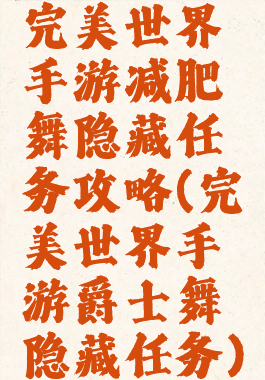 完美世界
手游减肥
舞隐藏任
务攻略(完
美世界手
游爵士舞
隐藏任务)